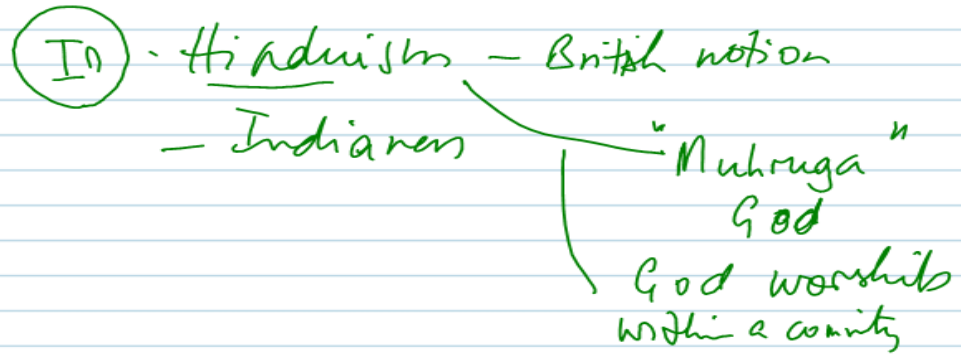 In . Hinduism - British notion
- Indianess
"Muhruga"
God
God worships
within a comnity